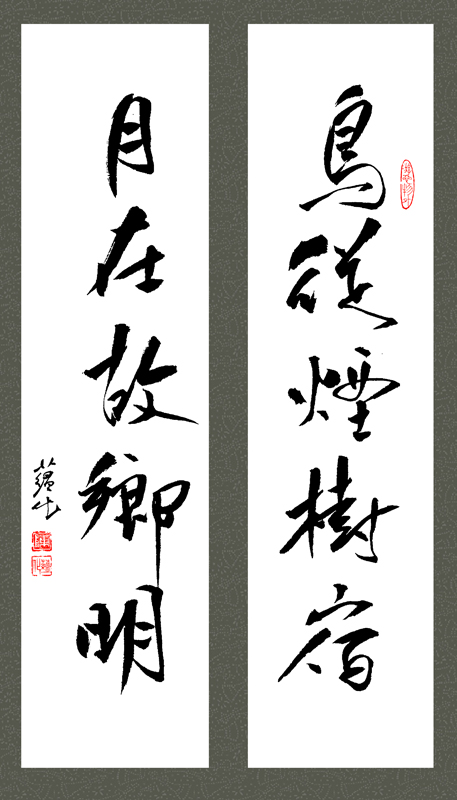 鳥從煙樹宿
月在故鄉明